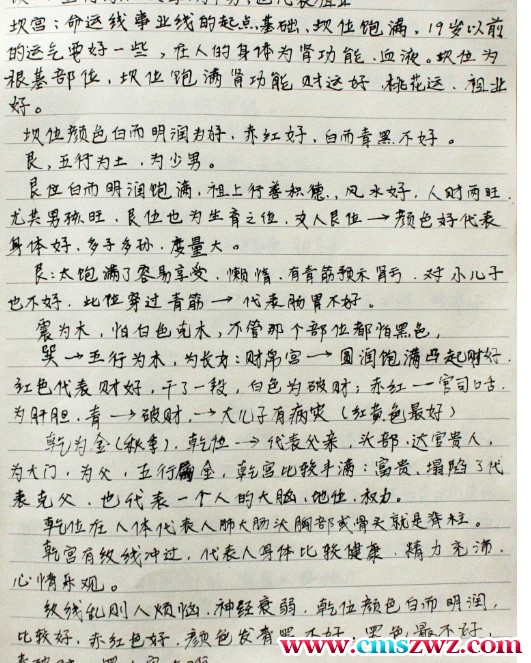 坎宫：命运线事业线的起点基础、坎位饱满，19岁以前
的运气要好一些，在人的身体为肾功能、血液。坎位为
根基部位，坎位饱满肾功能财运好，桃花运、祖业
好。
坎位颜色白而明润为好，赤红好，白而青黑不好。
艮，五行为土，为少男。
艮位白而明润饱满，祖上行善积德，风水好，人财两旺
尤其男孙旺，艮位也为生育之位，女人艮位→颜色好代表
身体好，多子多孙，度量大。
艮：太饱满了容易享受，懒惰，有青筋预示肾亏，对小儿子
也不好，此位穿过青筋→代表肠胃不好。
震为木，怕白色克木，不管那个部位都怕黑色，
巽→五行为木，为长女：财帛宫→圆润饱满凸起财好
红色代表财好，干了一致，白色为破财；赤红一官司口舌
为肝胆，青→破财，→大儿子有病灾（红黄色最好）
乾为金（秋季），乾位→代表父亲，头部，达官贵人，
为大门，为父，五行属金，乾宫比较丰满：富贵、塌陷了代
表克父，也代表一个人的大脑，地位，权力。
乾位在人体代表人肺大肠头胸部或骨头就是脊柱。
乾宫有纹线冲过，代表人身体比较健康，精力充沛，
心情乐观。
纹线乱则人烦恼，神经衰弱，乾位颜色白而明润，
比较好，赤红色好，颜色发青黑不好，黑色最不好，
www.cmszwz.com